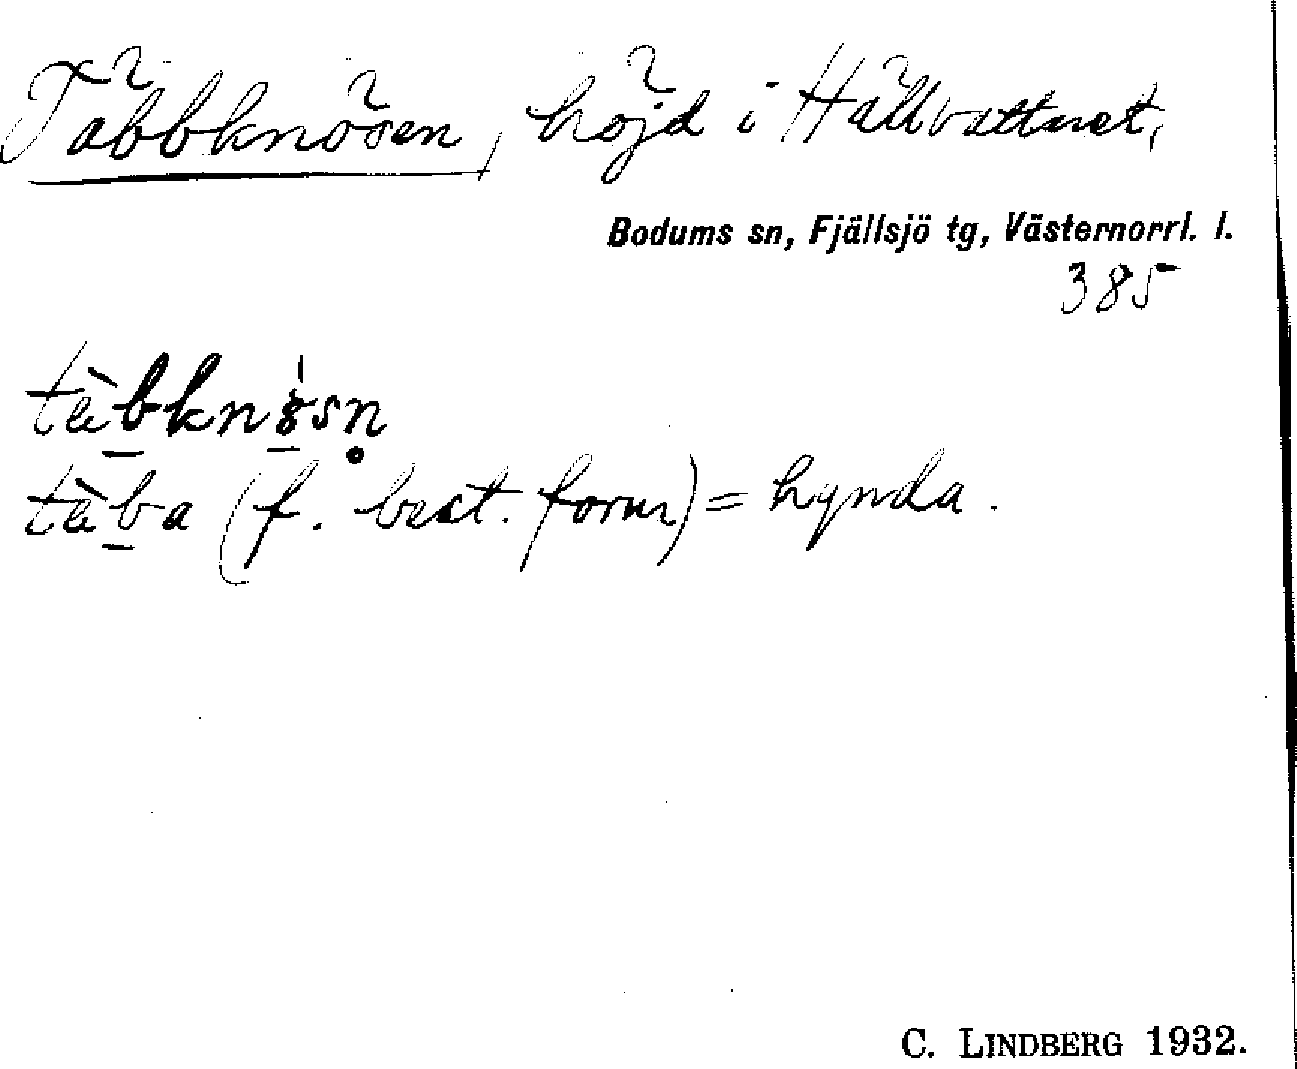 Täbbknösen, höjd i Hällvattnet,
Bodums sn, Fjällsjö tg, Västernorrl. l.
385
tä̀bknösn̥
tä̀ba (f. best. form) = hynda.
C. LINDBERG 1932.